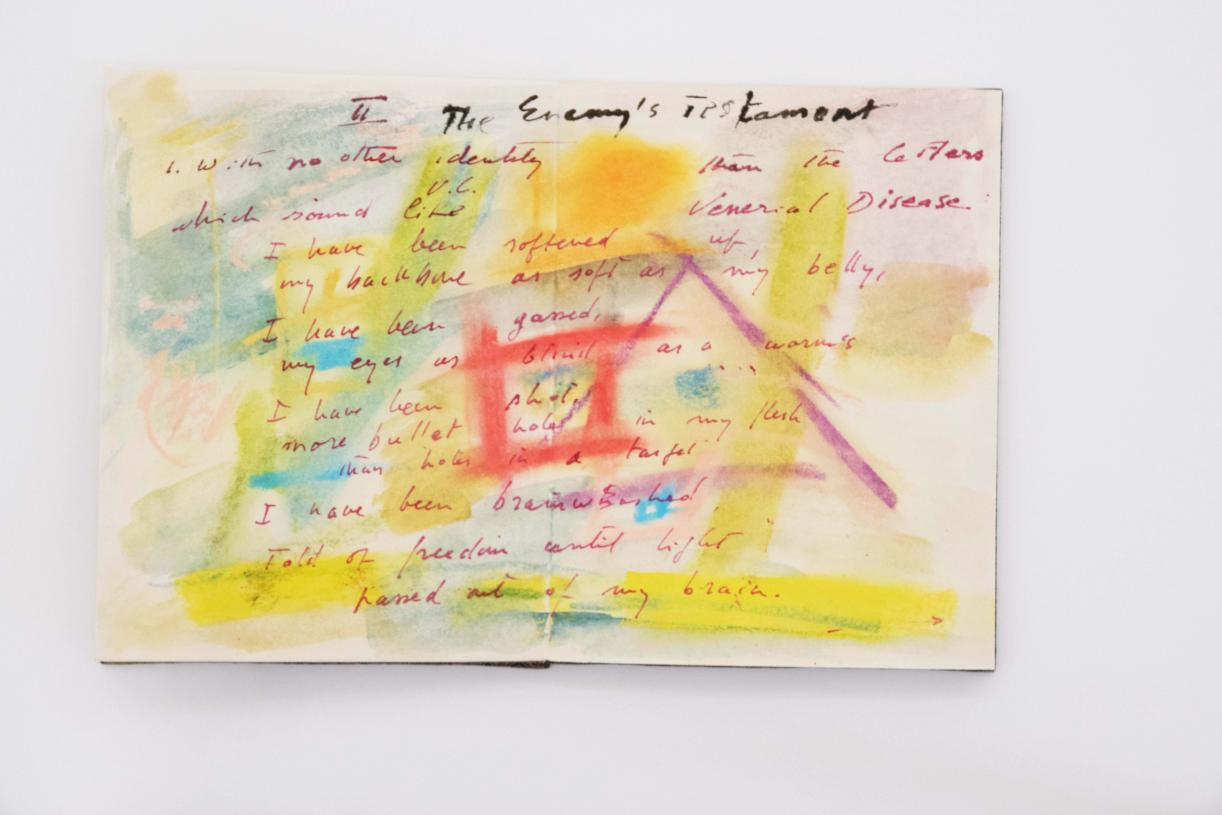 II The Enemy's Testament
1. With no other identity than the letters
V.C.
which sound like Venerial Disease.
I have been softened up,
my backbone as soft as my belly,
I have been gassed,
my eyes as blind as a worm's
I have been shot,
more bullet holes in my flesh
than holes in a target
I have been brainwashed,
Told of freedom until light
passed out of my brain.
→